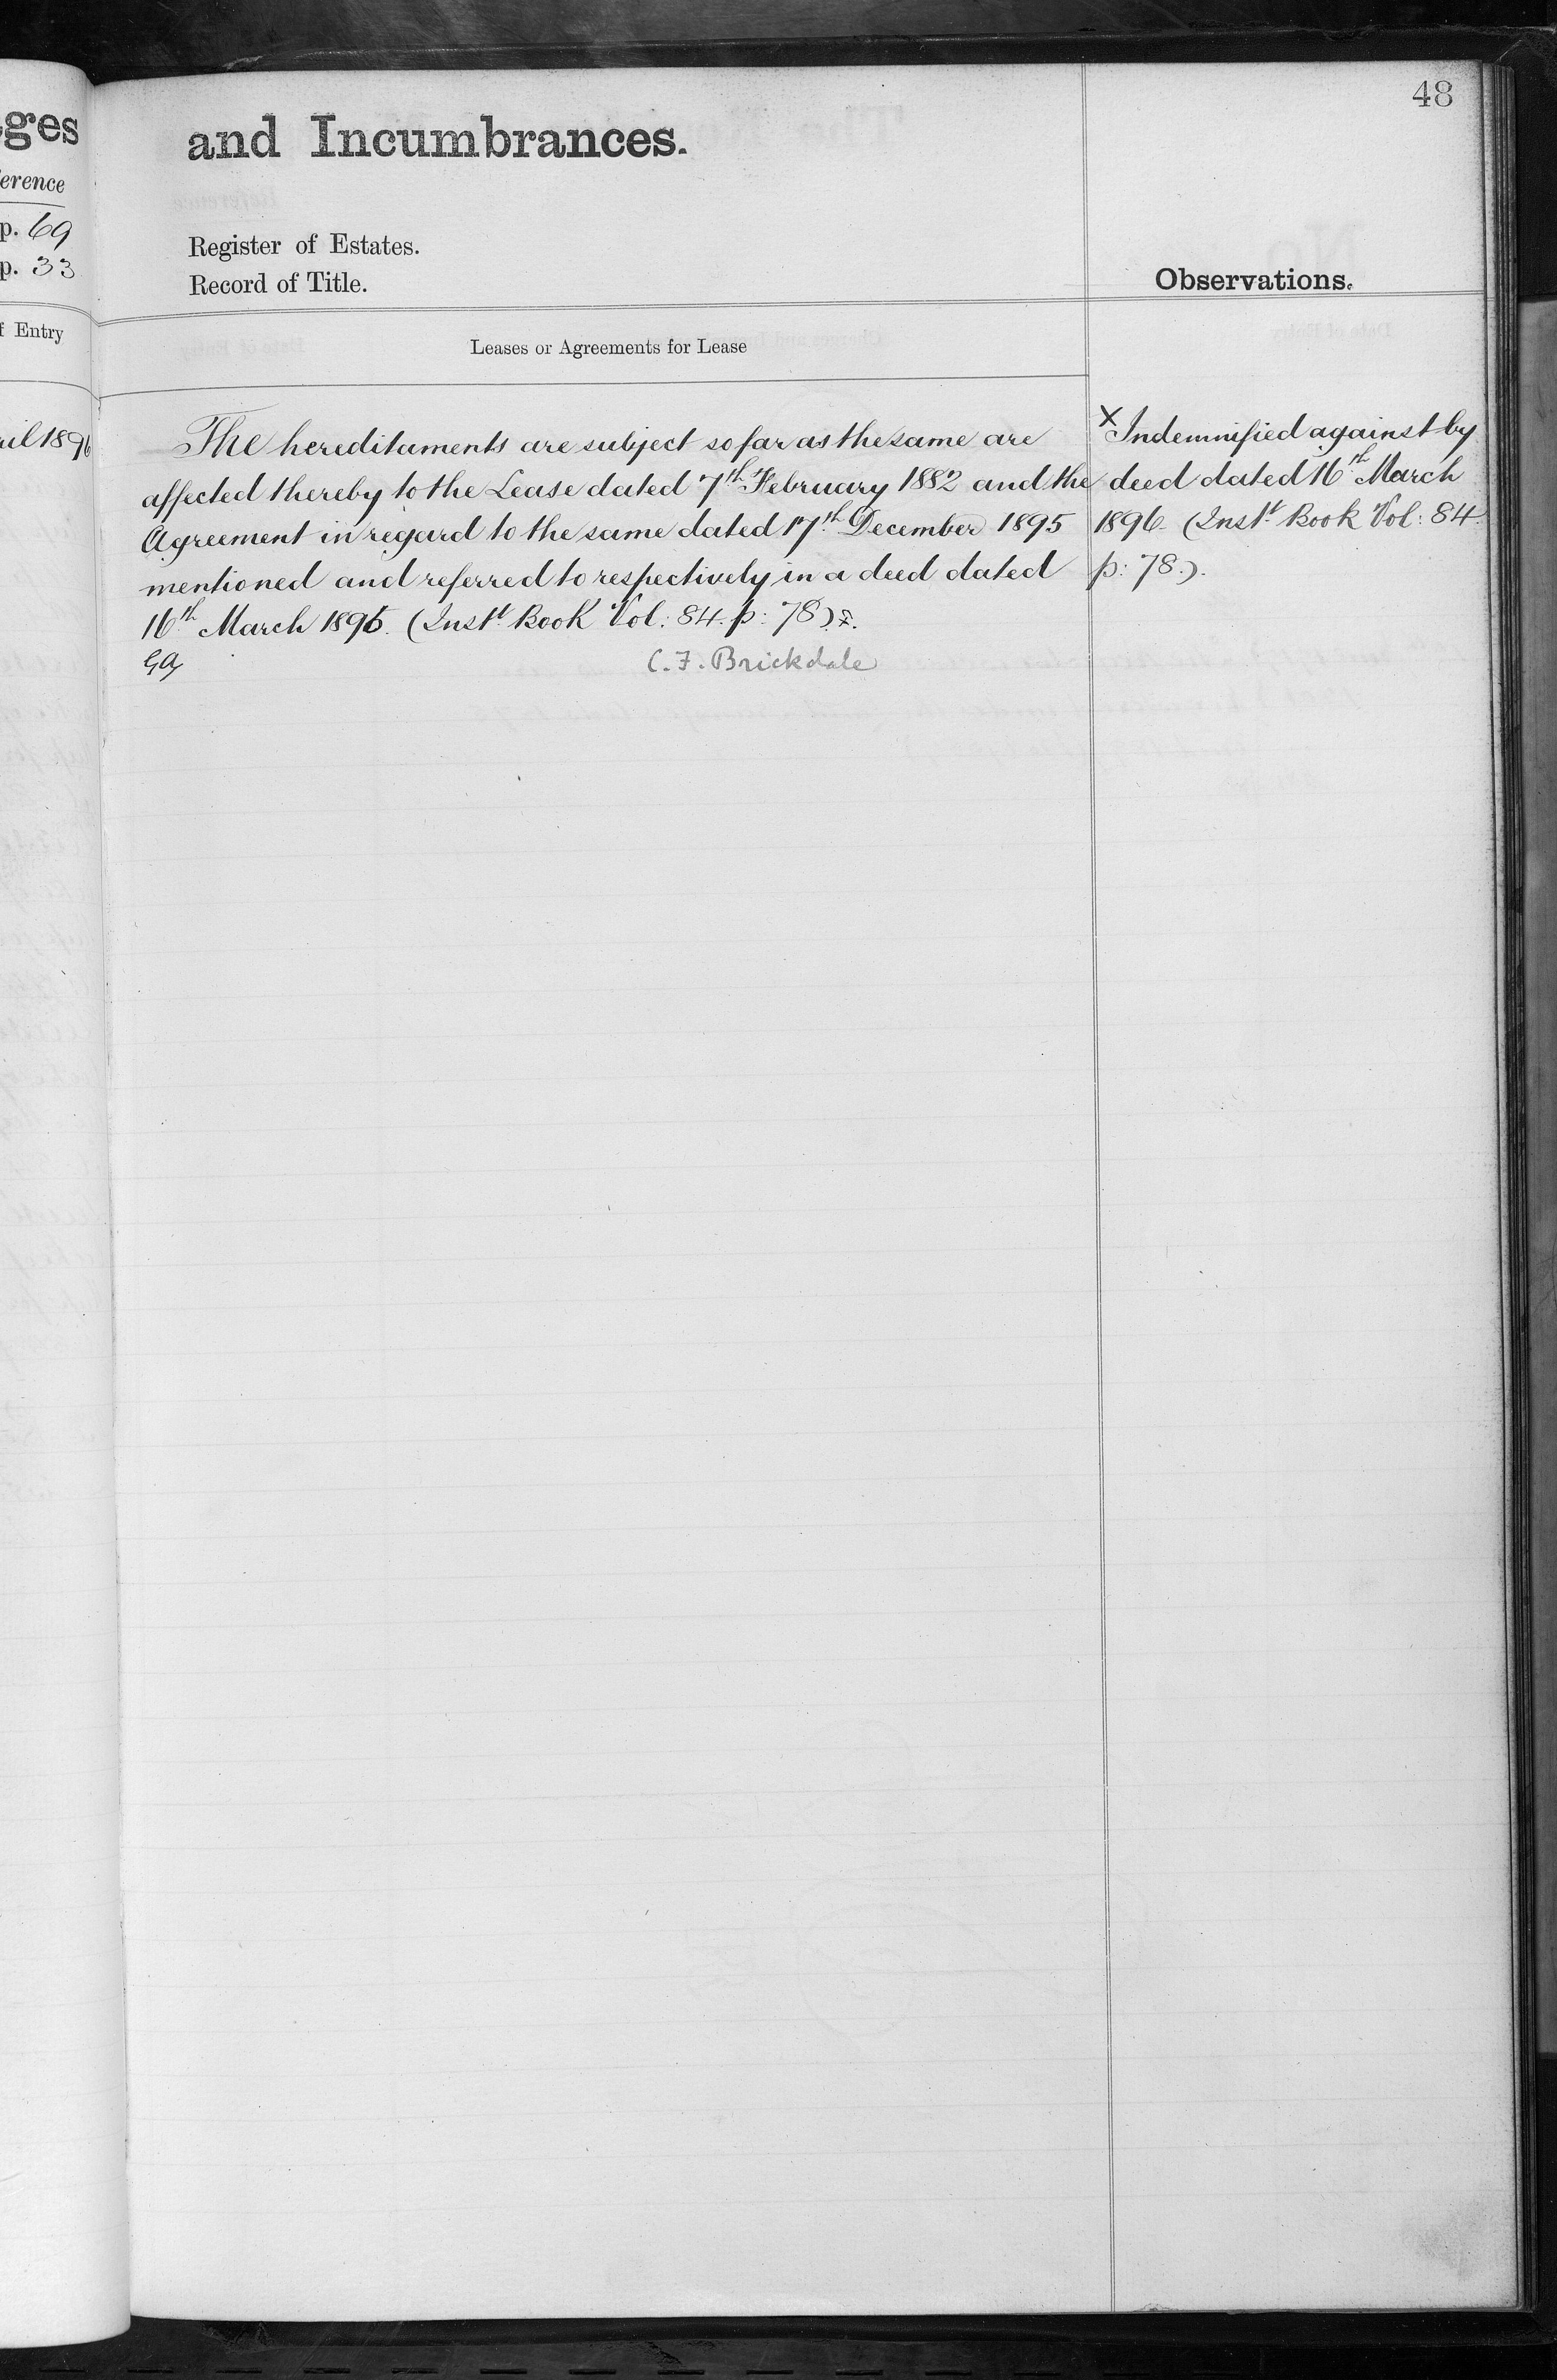 48
ges
and Incumbrances.
erence
p. 69
Register of Estates.
p. 33
Record of Title.
Observations.
f Entry
Leases or Agreements for Lease
ril 1896
The hereditaments are subject so far as the same are
affected thereby to the Lease dated 7th February 1882 and the
Agreement in regard to the same dated 17th December 1895
mentioned and referred to respectively in a deed dated
16th March 1896. (Instt Book Vol: 84. p: 78) x.
C. F. Brickdale
x Indemnified against by
deed dated 16th March
1896. (Instt Book Vol: 84
p: 78.).